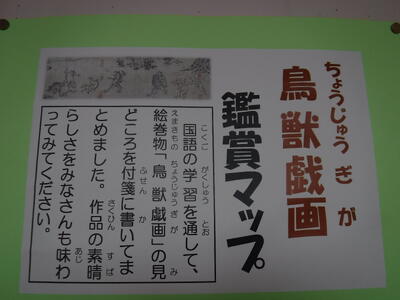 ちょうじゅう ぎ が
鳥獣戯画
鑑賞マップ
こくご がくしゅう とお
国語の学習を通して、
えまきもの ちょうじゅうぎが み
絵巻物「鳥獣戯画」の見
ふせん か
どころを付箋に書いてま
さくひん すば
とめました。作品の素晴
あじ
らしさをみなさんも味わ
ってみてください。